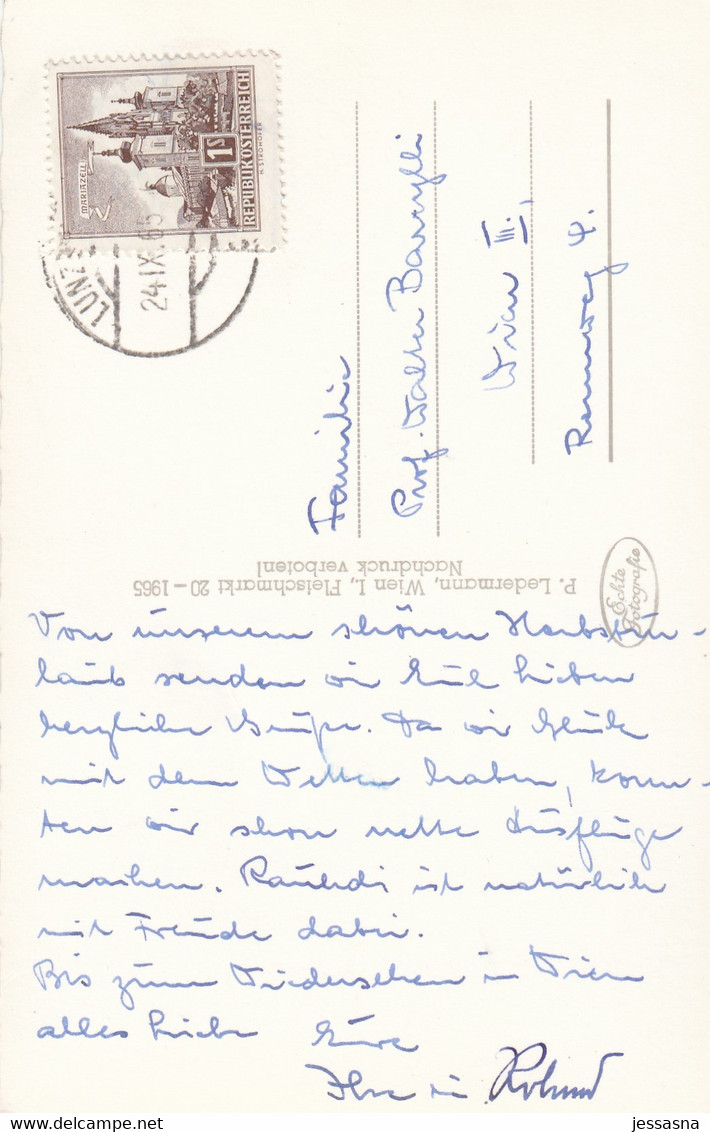 MARIAZELL
1S
REPUBLIK ÖSTERREICH
H. STROHOFER
LUNZ
24.IX.65
Familie
Prof. Walter Barylli
Wien III.,
Rennweg 4.
P. Ledermann, Wien I., Fleischmarkt 20 – 1965
Nachdruck verboten!
Echte
Fotografie
Von unserem schönen Herbstur-
laub senden wir Euch lieben
herzliche Grüße. Da wir Glück
mit dem Wetter haben, konn-
ten wir schon nette Ausflüge
machen. ist natürlich
mit Freude dabei.
Bis zum Wiedersehen in Wien
alles Liebe Eure
Roland
jessasna